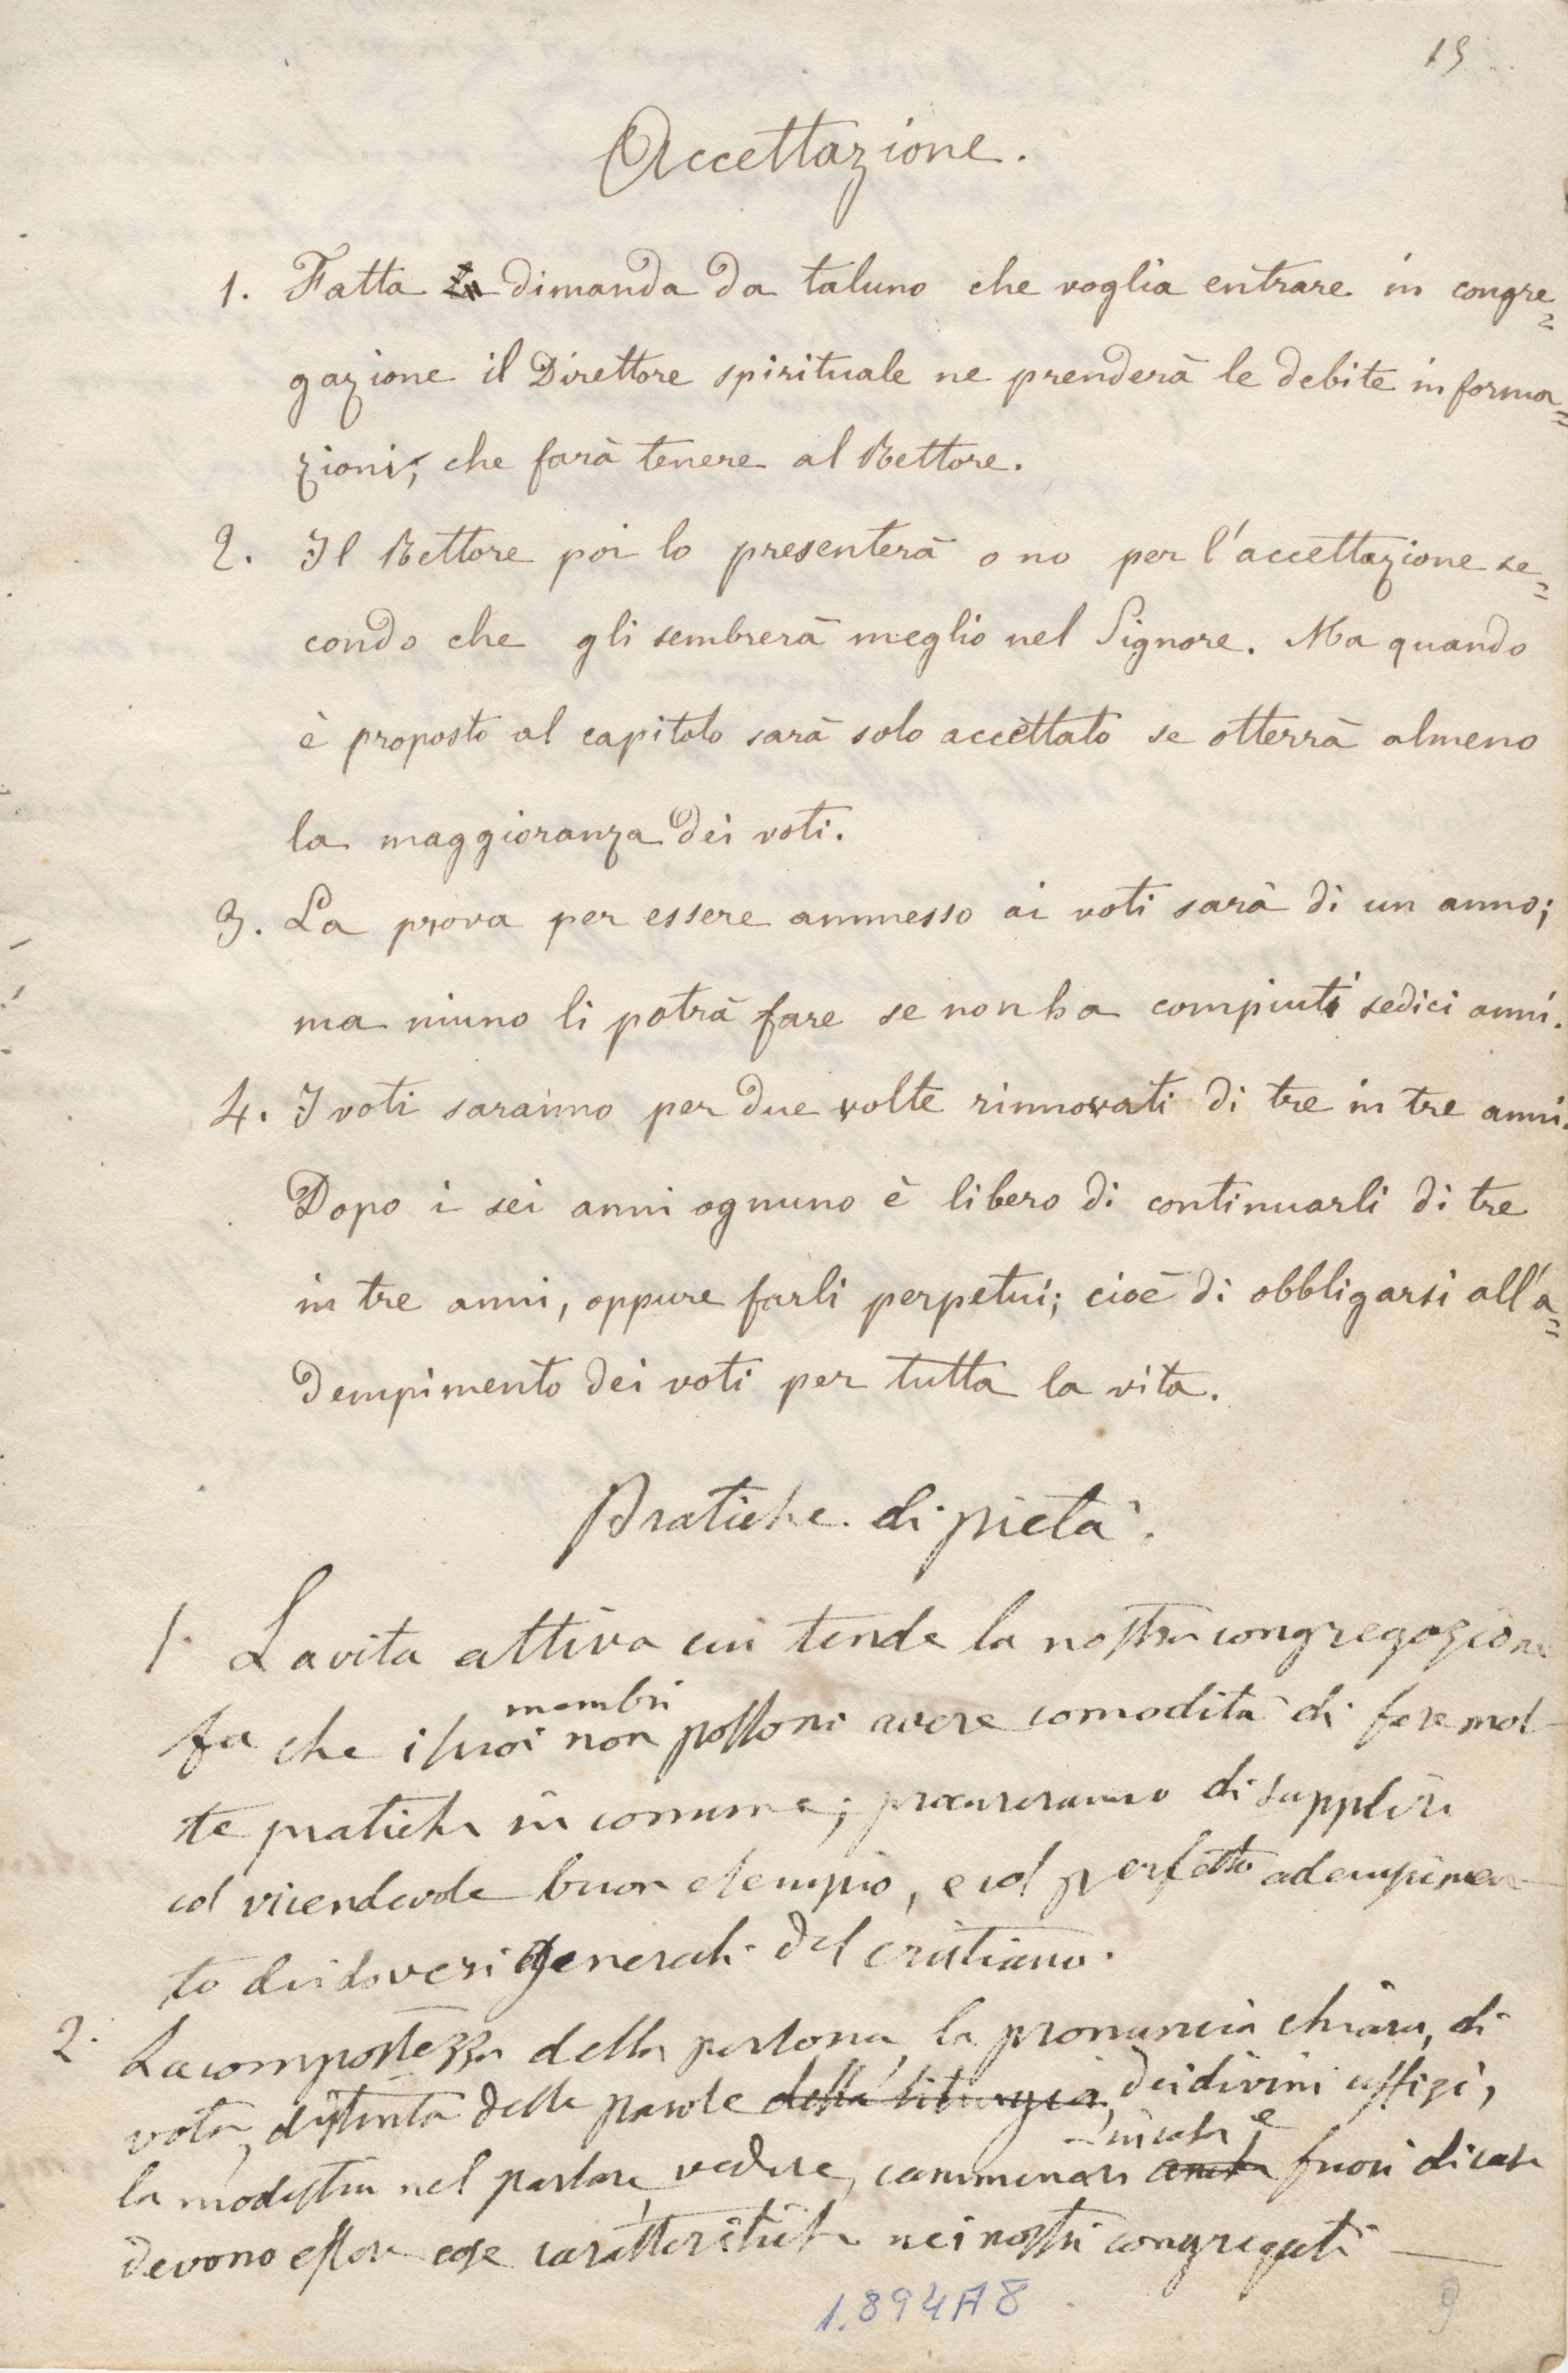 15
Accettazione.
1. Fatta la dimanda da taluno che voglia entrare in congre=
gazione il Direttore spirituale ne prenderà le debite informa=
zioni, che farà tenere al Rettore.
2. Il Rettore poi lo presenterà o no per l'accettazione se=
condo che gli sembrerà meglio nel Signore. Ma quando
è proposto al capitolo sarà solo accettato se otterrà almeno
la maggioranza dei voti.
3. La prova per essere ammesso ai voti sarà di un anno;
ma niuno li potrà fare se non ha compiuti sedici anni.
4. I voti saranno per due volte rinnovati di tre in tre anni.
Dopo i sei anni ognuno è libero di continuarli di tre
in tre anni, oppure farli perpetui; cioè di obbligarsi all'a=
dempimento dei voti per tutta la vita.
Pratiche di pietà.
1. La vita attiva cui tende la nostra congregazione
membri
fa che i suoi non possono avere comodità di fare mol
te pratiche in comune; procureranno di supplire
col vicendevole buon esempio, e col perfetto adempimen
to dei doveri generali del cristiano.
2. La compostezza della persona, la pronuncia chiara, di
vota, distinta delle parole della liturgia, dei divini uffizi,
in casa e
la modestia nel parlare, vedere, camminare anche fuori di casa
devono essere cose caratteristiche nei nostri congregati —
1.894A8
9